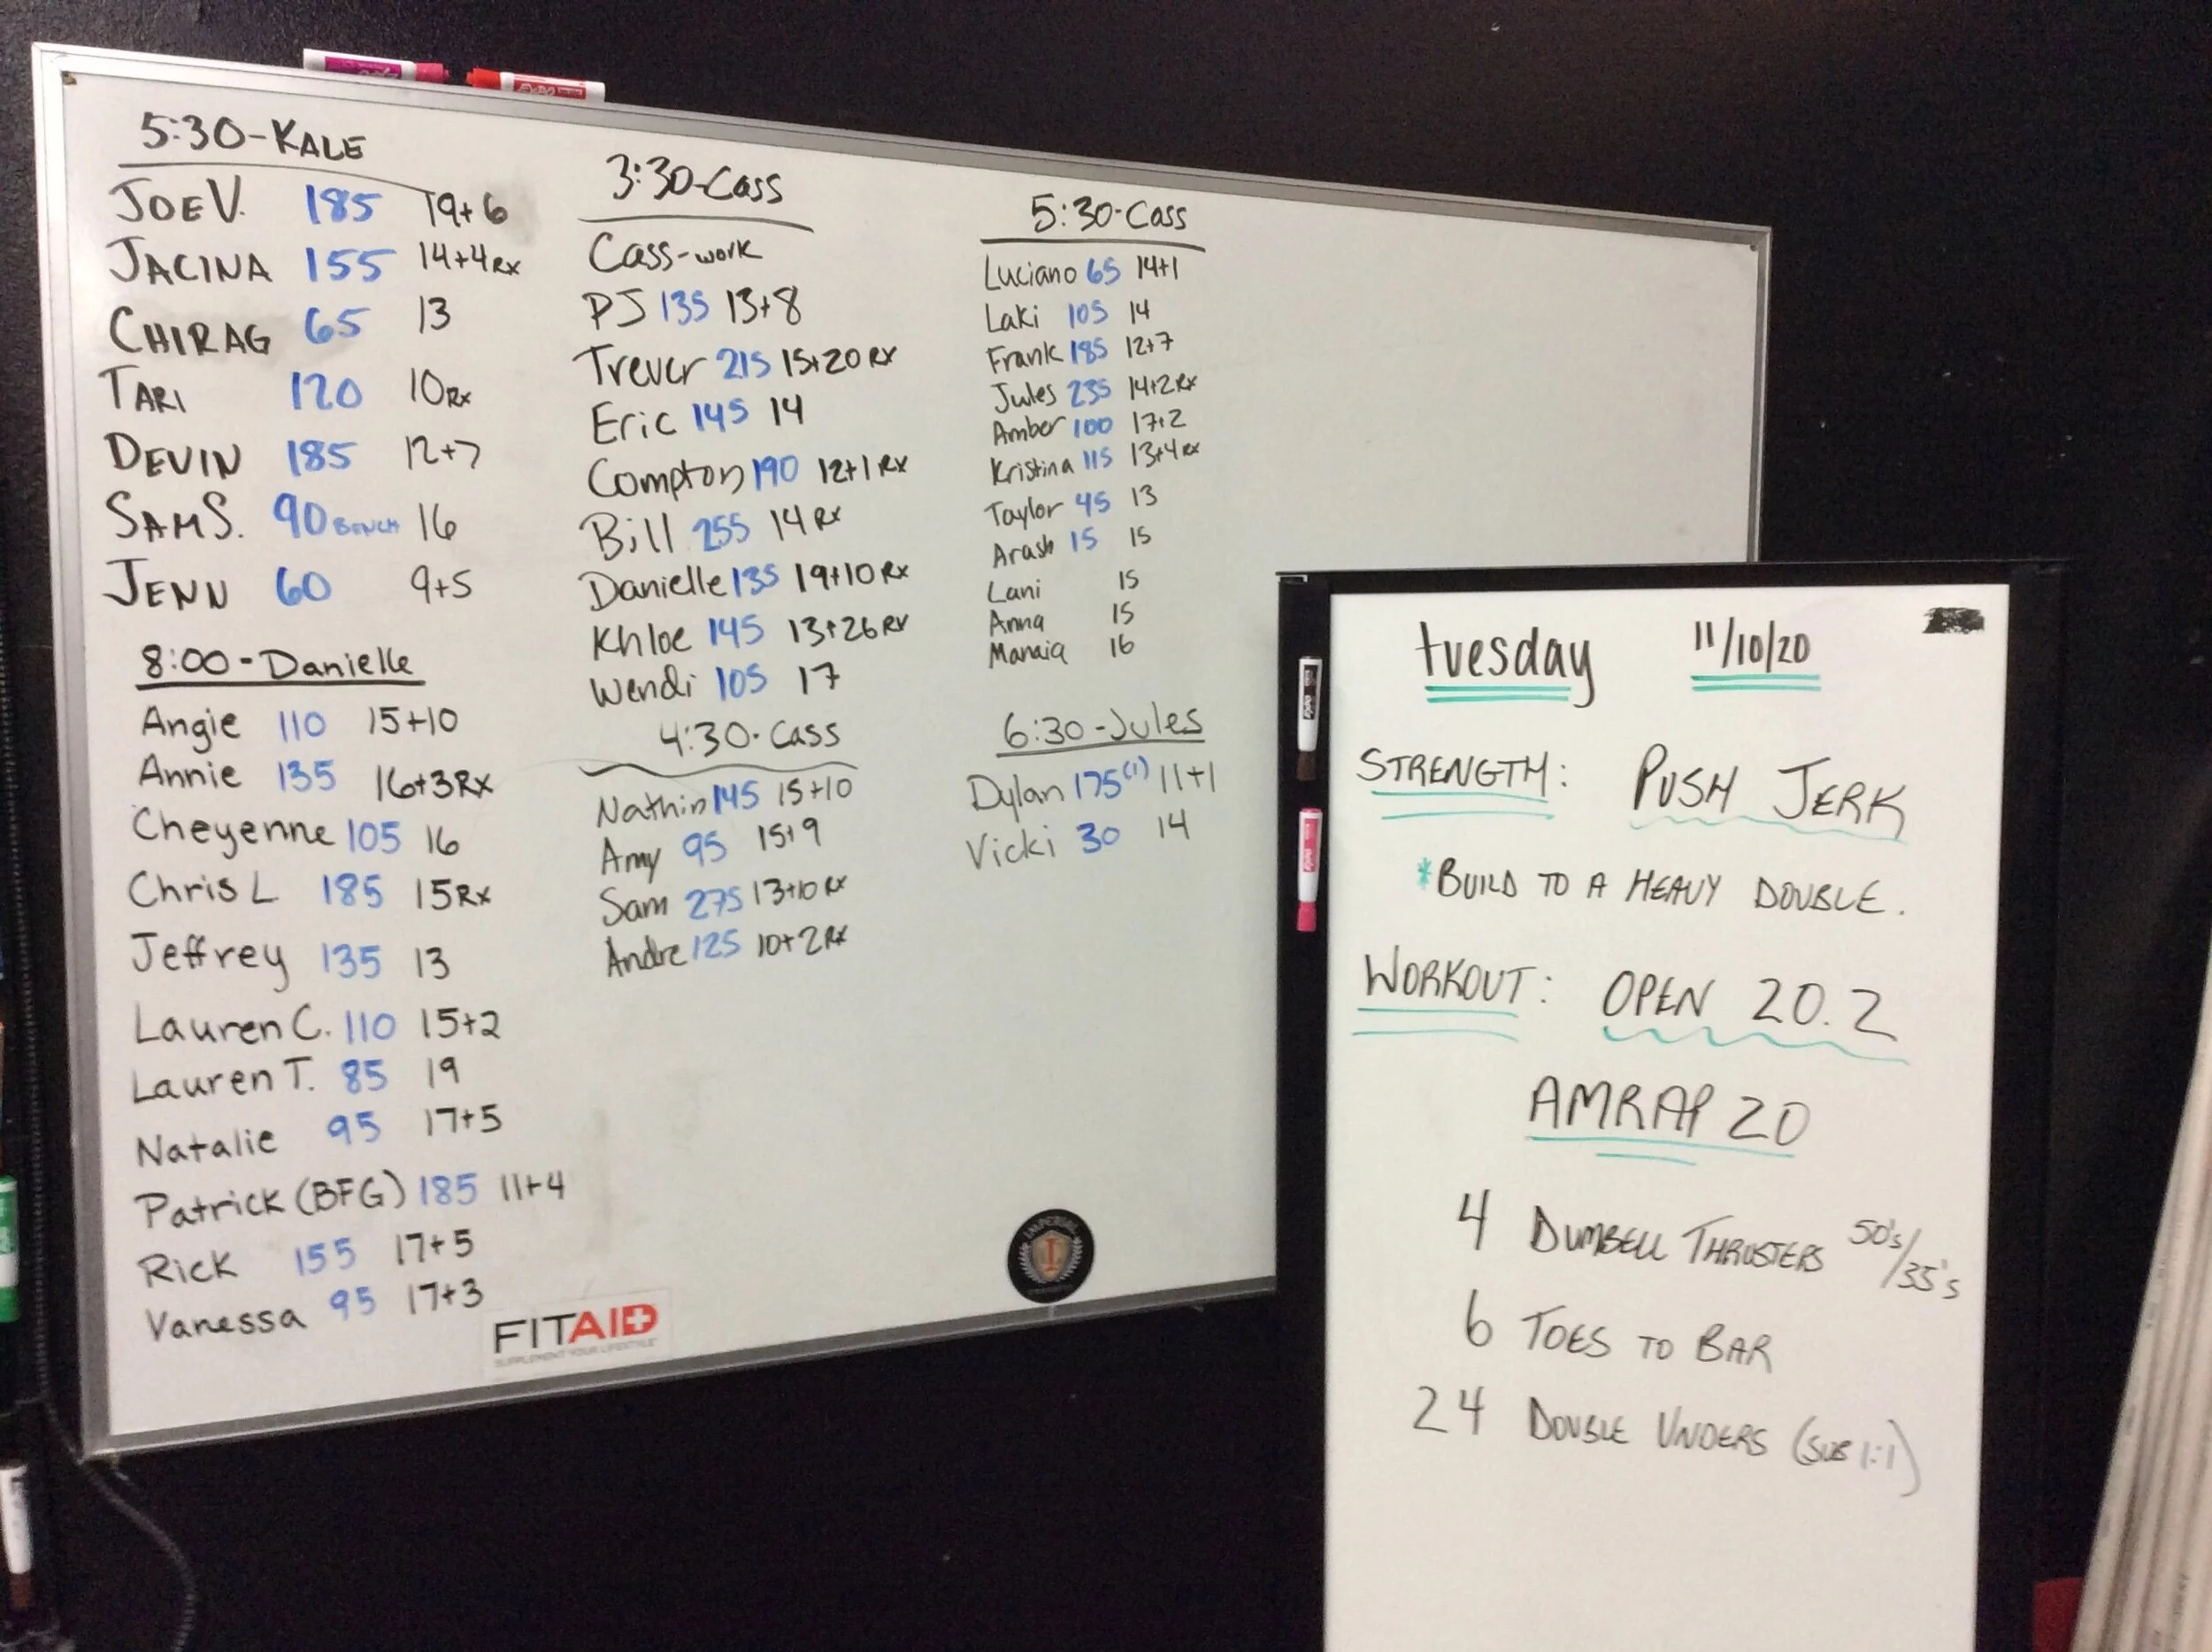 5:30-KALE
JOE V. 185 19+6
JACINA 155 14+4 RX
CHIRAG 65 13
TARI 120 10 RX
DEVIN 185 12+7
SAM S. 90 BENCH 16
JENN 60 9+5
8:00-Danielle
Angie 110 15+10
Annie 135 16+3 Rx
Cheyenne 105 16
Chris L 185 15 Rx
Jeffrey 135 13
Lauren C. 110 15+2
Lauren T. 85 19
Natalie 95 17+5
Patrick (BFG) 185 11+4
Rick 155 17+5
Vanessa 95 17+3
FITAID
SUPPLEMENT YOUR LIFESTYLE
3:30-Cass
Cass-work
PJ 135 13+8
Trever 215 15+20 RX
Eric 145 14
Compton 190 12+1 RX
Bill 255 14 RX
Danielle 135 19+10 RX
Khloe 145 13+26 RX
Wendi 105 17
4:30-Cass
Nathin 145 15+10
Amy 95 15+9
Sam 275 13+10 RX
Andre 125 10+2 RX
5:30-Cass
Luciano 65 14+1
Laki 105 14
Frank 185 12+7
Jules 235 14+2 RX
Amber 100 17+2
Kristina 115 13+4 RX
Taylor 45 13
Arash 15 15
Lani 15
Anna 15
Manaia 16
6:30-Jules
Dylan 175 (1) 11+1
Vicki 30 14
IMPERIAL
I
tuesday 11/10/20
STRENGTH: PUSH JERK
*BUILD TO A HEAVY DOUBLE.
WORKOUT: OPEN 20.2
AMRAP 20
4 DUMBELL THRUSTERS 50's/35's
6 TOES TO BAR
24 DOUBLE UNDERS (SUB 1:1)